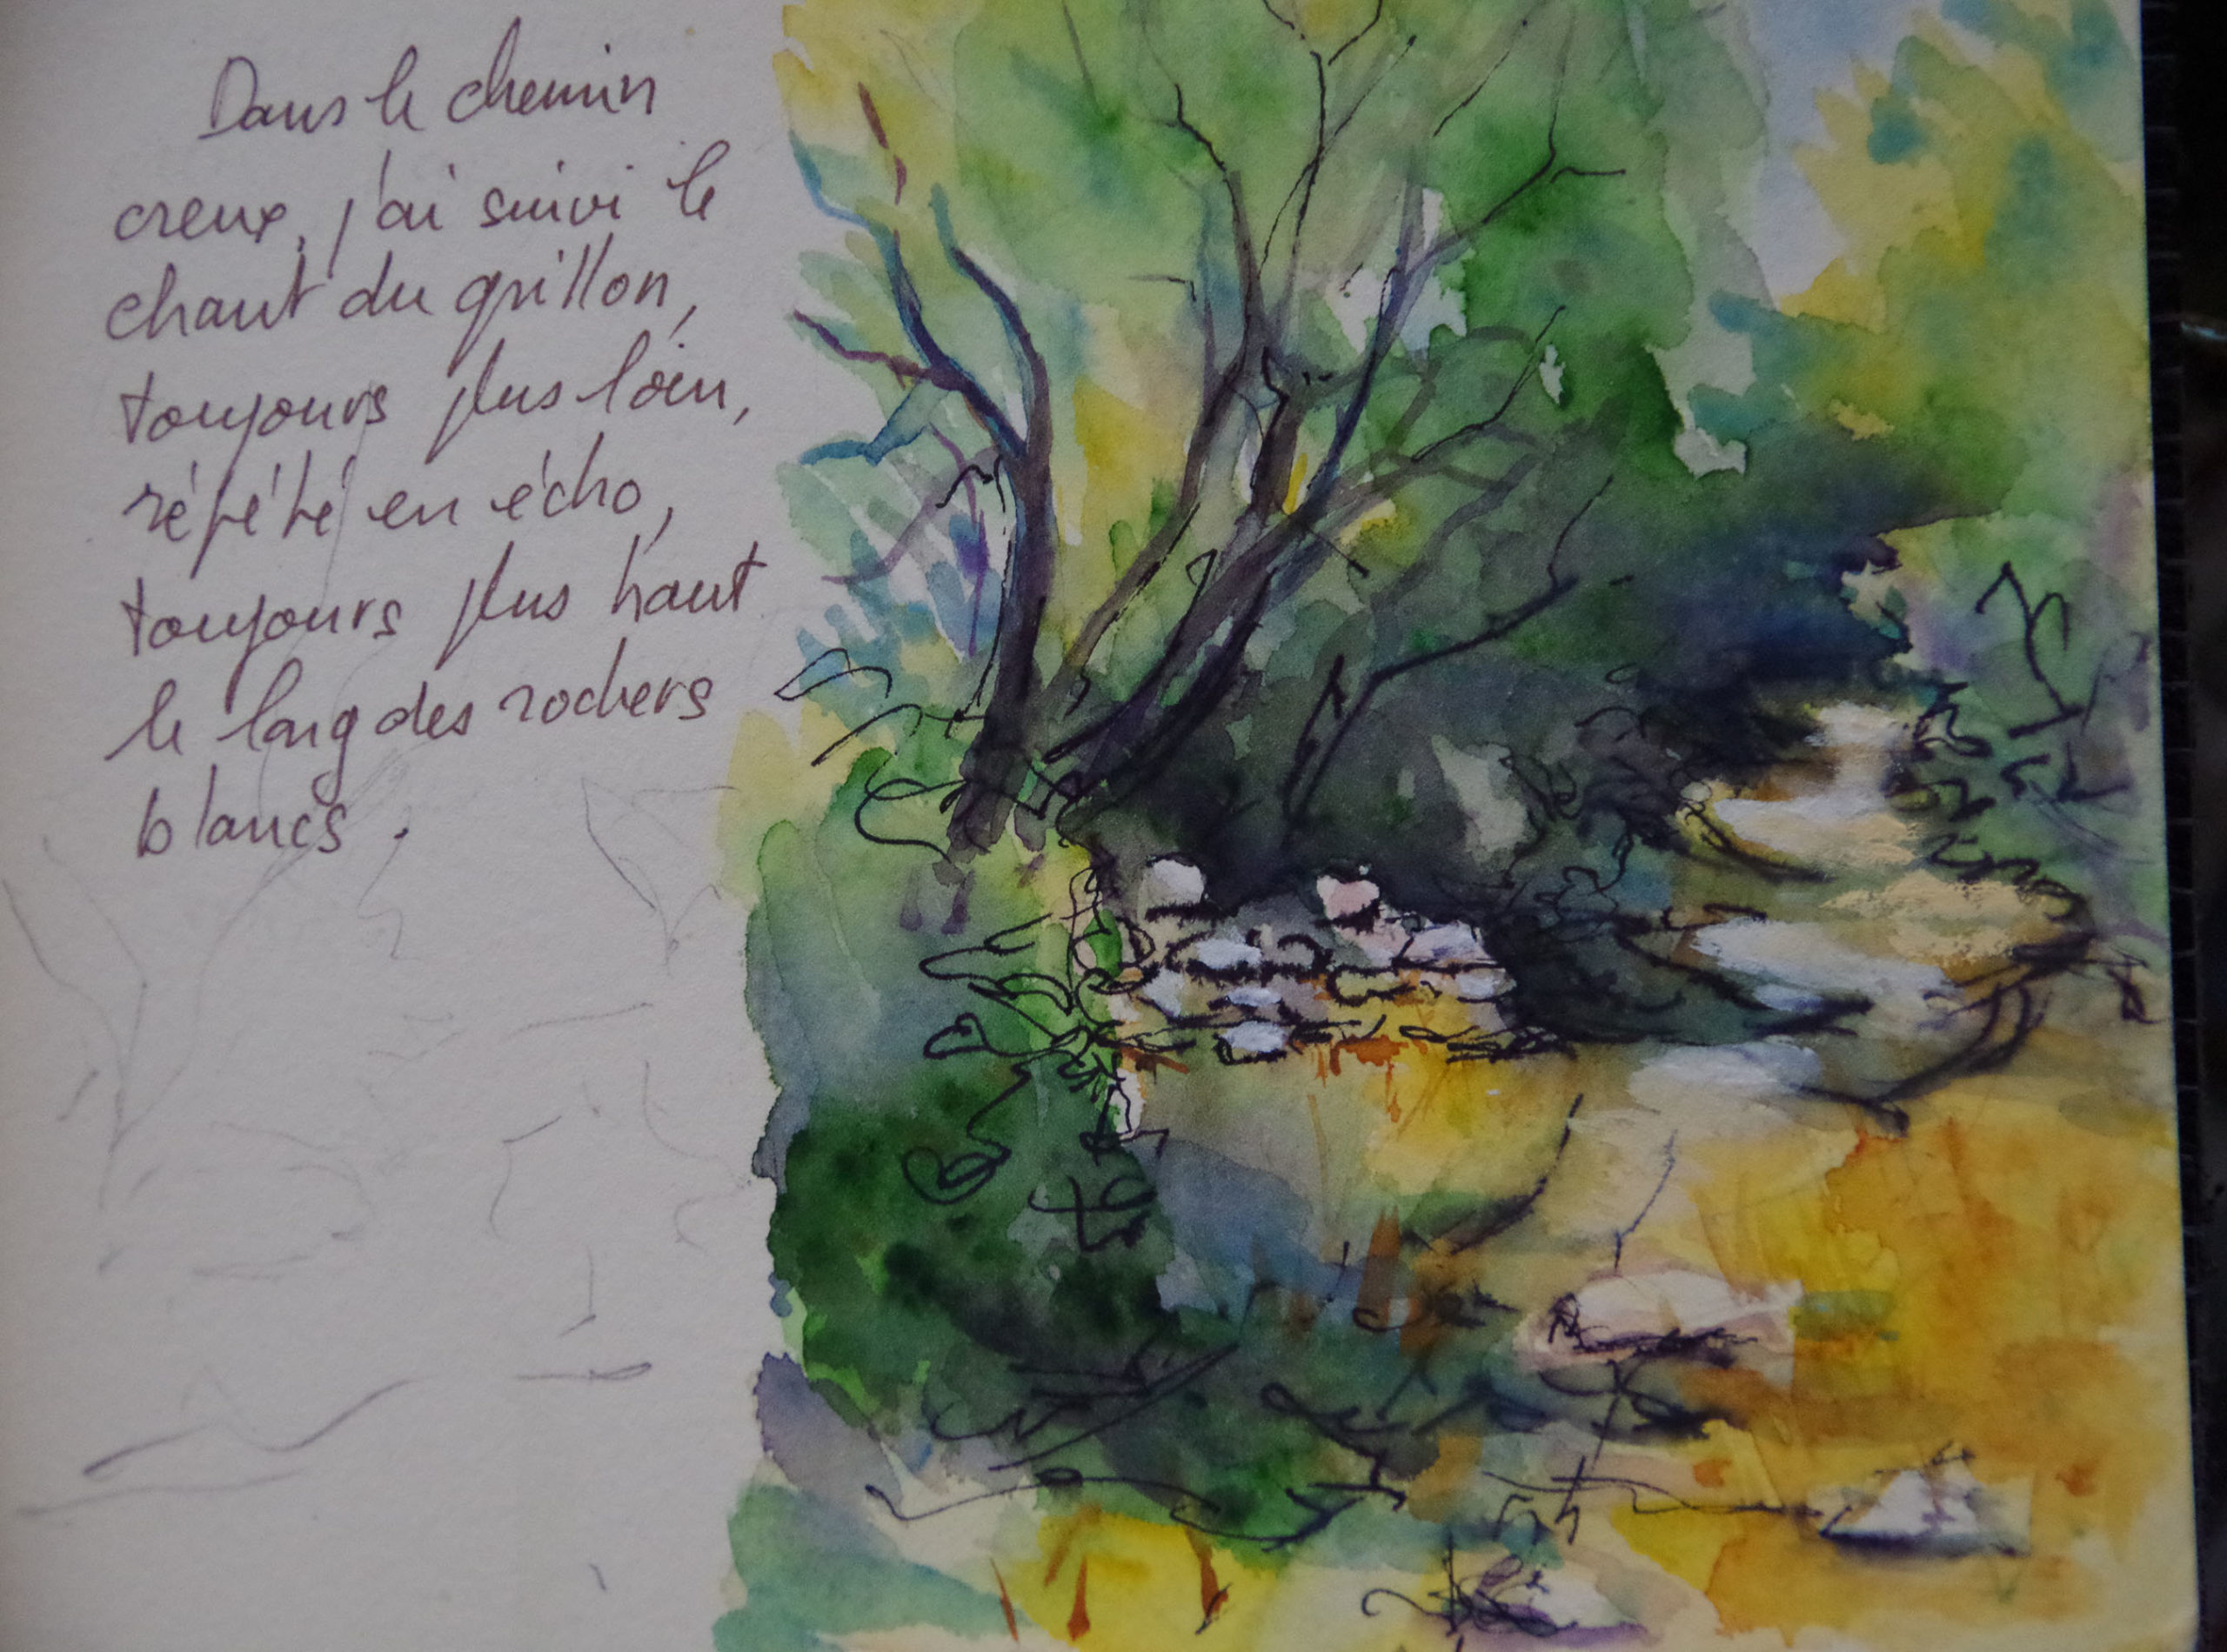 Dans le chemin
creux, j'ai suivi le
chant du grillon,
toujours plus loin,
répété en écho,
toujours plus haut
le long des rochers
blancs.